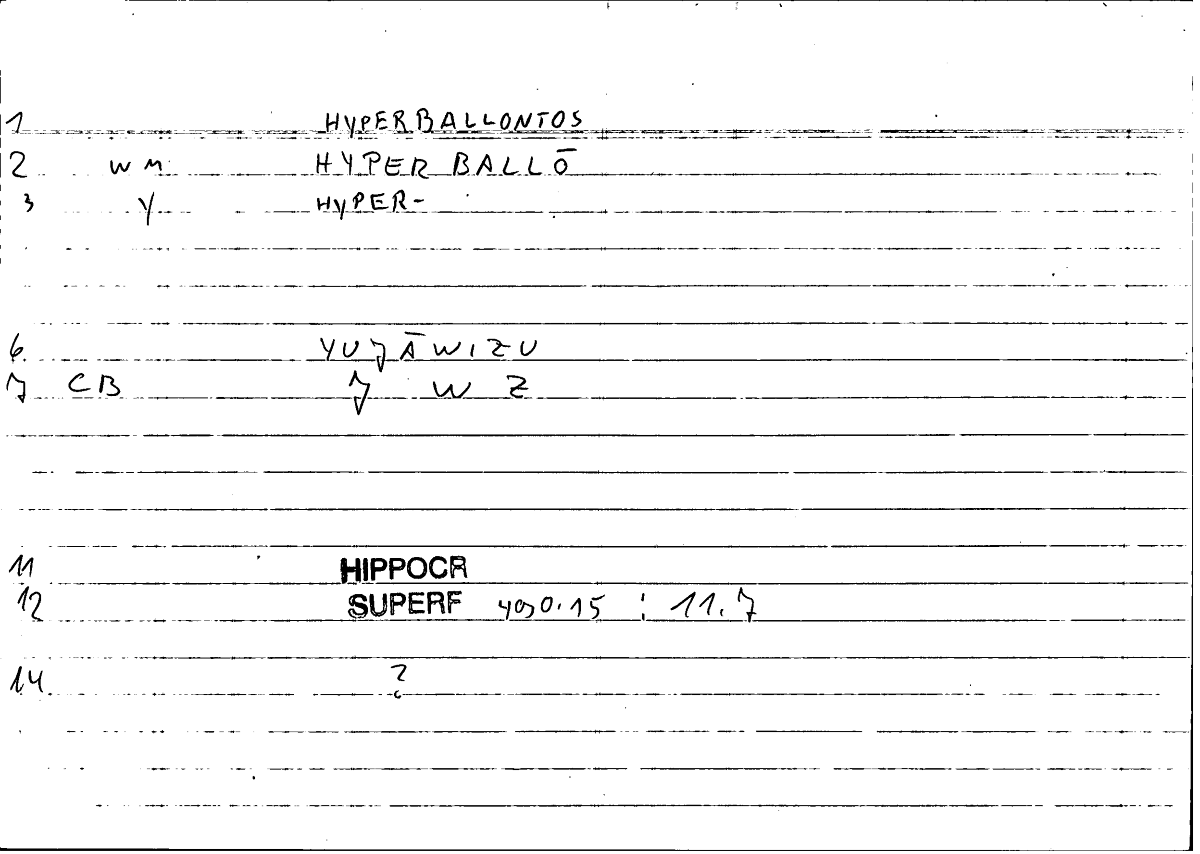 1 HYPERBALLONTOS
2 WM HYPERBALLŌ
3 Y HYPER-
6 YUJĀWIZU
7 CB J W Z
11 HIPPOCR
12 SUPERF 490.15 : 11.7
14 ?